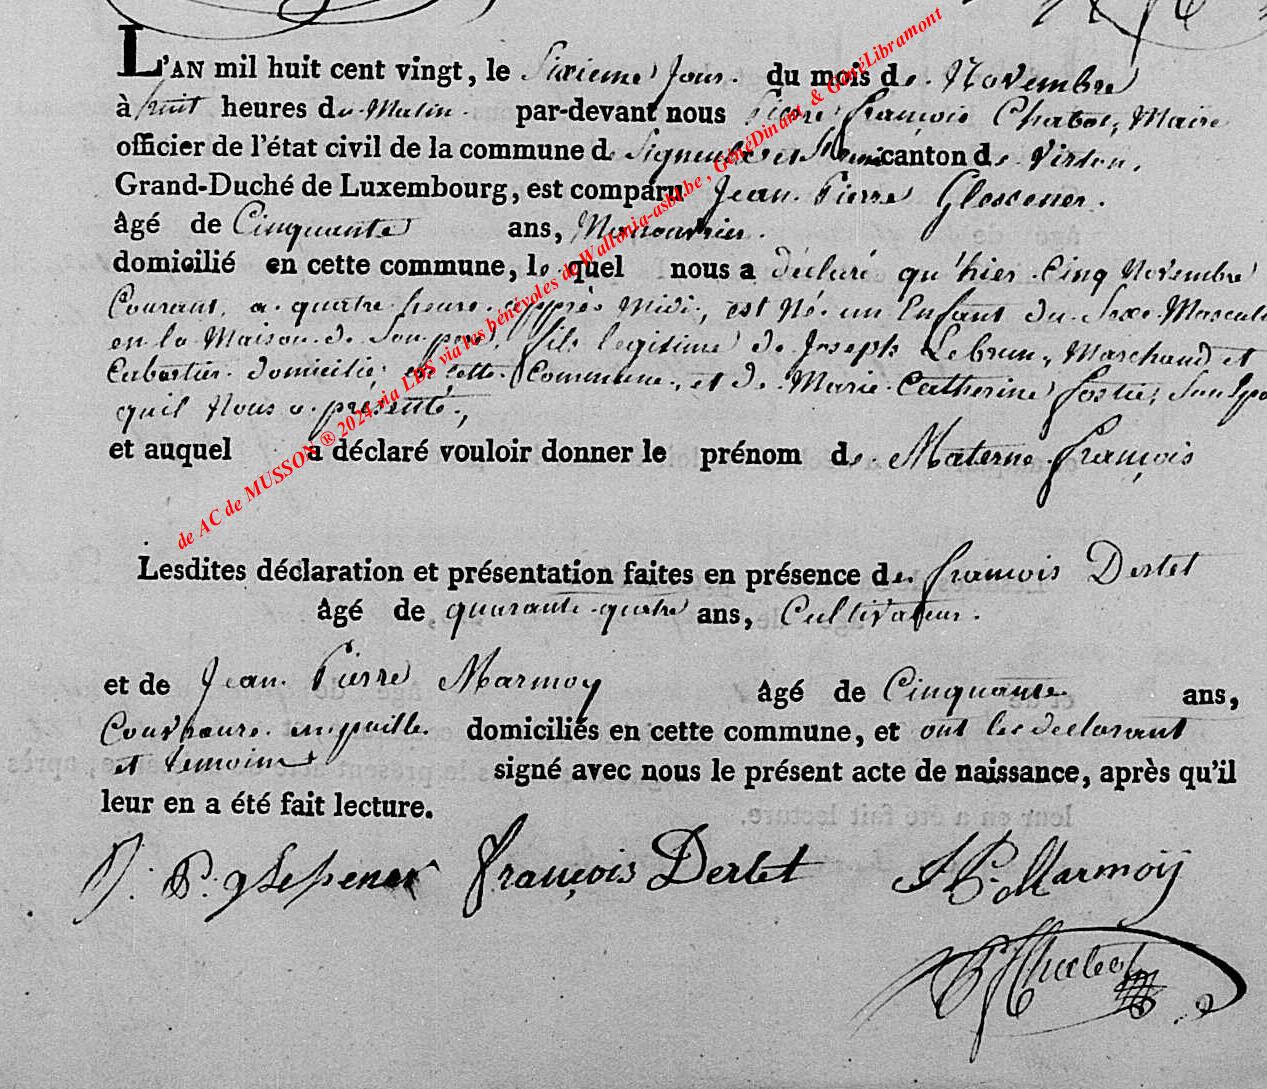 L'AN mil huit cent vingt, le Sixieme Jour du mois de Novembre
à huit heures du Matin par-devant nous Pierre François Chabot, Maire
officier de l'état civil de la commune de Signeulx et canton de Virton,
Grand-Duché de Luxembourg, est comparu Jean Pierre
âgé de Cinquante ans, Manouvrier.
domicilié en cette commune, le quel nous a déclaré qu'hier Cinq Novembre
Courant, a quatre heure d'après Midi, est Né un Enfant du Sexe Masculi
en la Maison de Son pere, fils legitime de Joseph Lebrun, Marchand et
Cabartier domicilié en cette Commune, et de Marie Catherine
quil Nous a presenté,
et auquel a déclaré vouloir donner le prénom de Materne François
de AC de MUSSON ® 2024 via LDS via les bénévoles de Wallonia-asbl.be, GénéDinant, & GénéLibramont
Lesdites déclaration et présentation faites en présence de françois Dertet
âgé de quarante quatre ans, Cultivateur.
et de Jean Pierre Marmoy âgé de Cinquante ans,
Couvreure en paille domiciliés en cette commune, et ont les declarant
et temoins signé avec nous le présent acte de naissance, après qu'il
leur en a été fait lecture.
J. P. françois Dertet J P Marmoÿ
P f Chabot